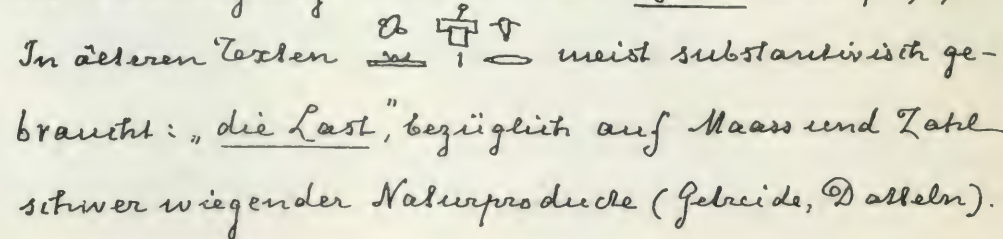 In älteren Texten meist substantivisch ge-
braucht: „die Last", bezüglich auf Maass und Zahl
schwer wiegender Naturproducte (Getreide, Datteln).